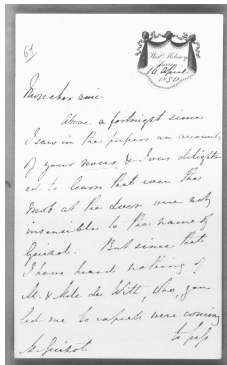 61
West Molesey
Surrey
16 April
1850
Mon cher ami
Above a fortnight since
I saw in the papers an account
of your noces & I was delight
ed to learn that even the
mob at the door were not
insensible to the name of
Guizot. But since that
I have heard nothing of
M. & Mde de Witt, who, you
led me to expect were coming
to
M. Guizot